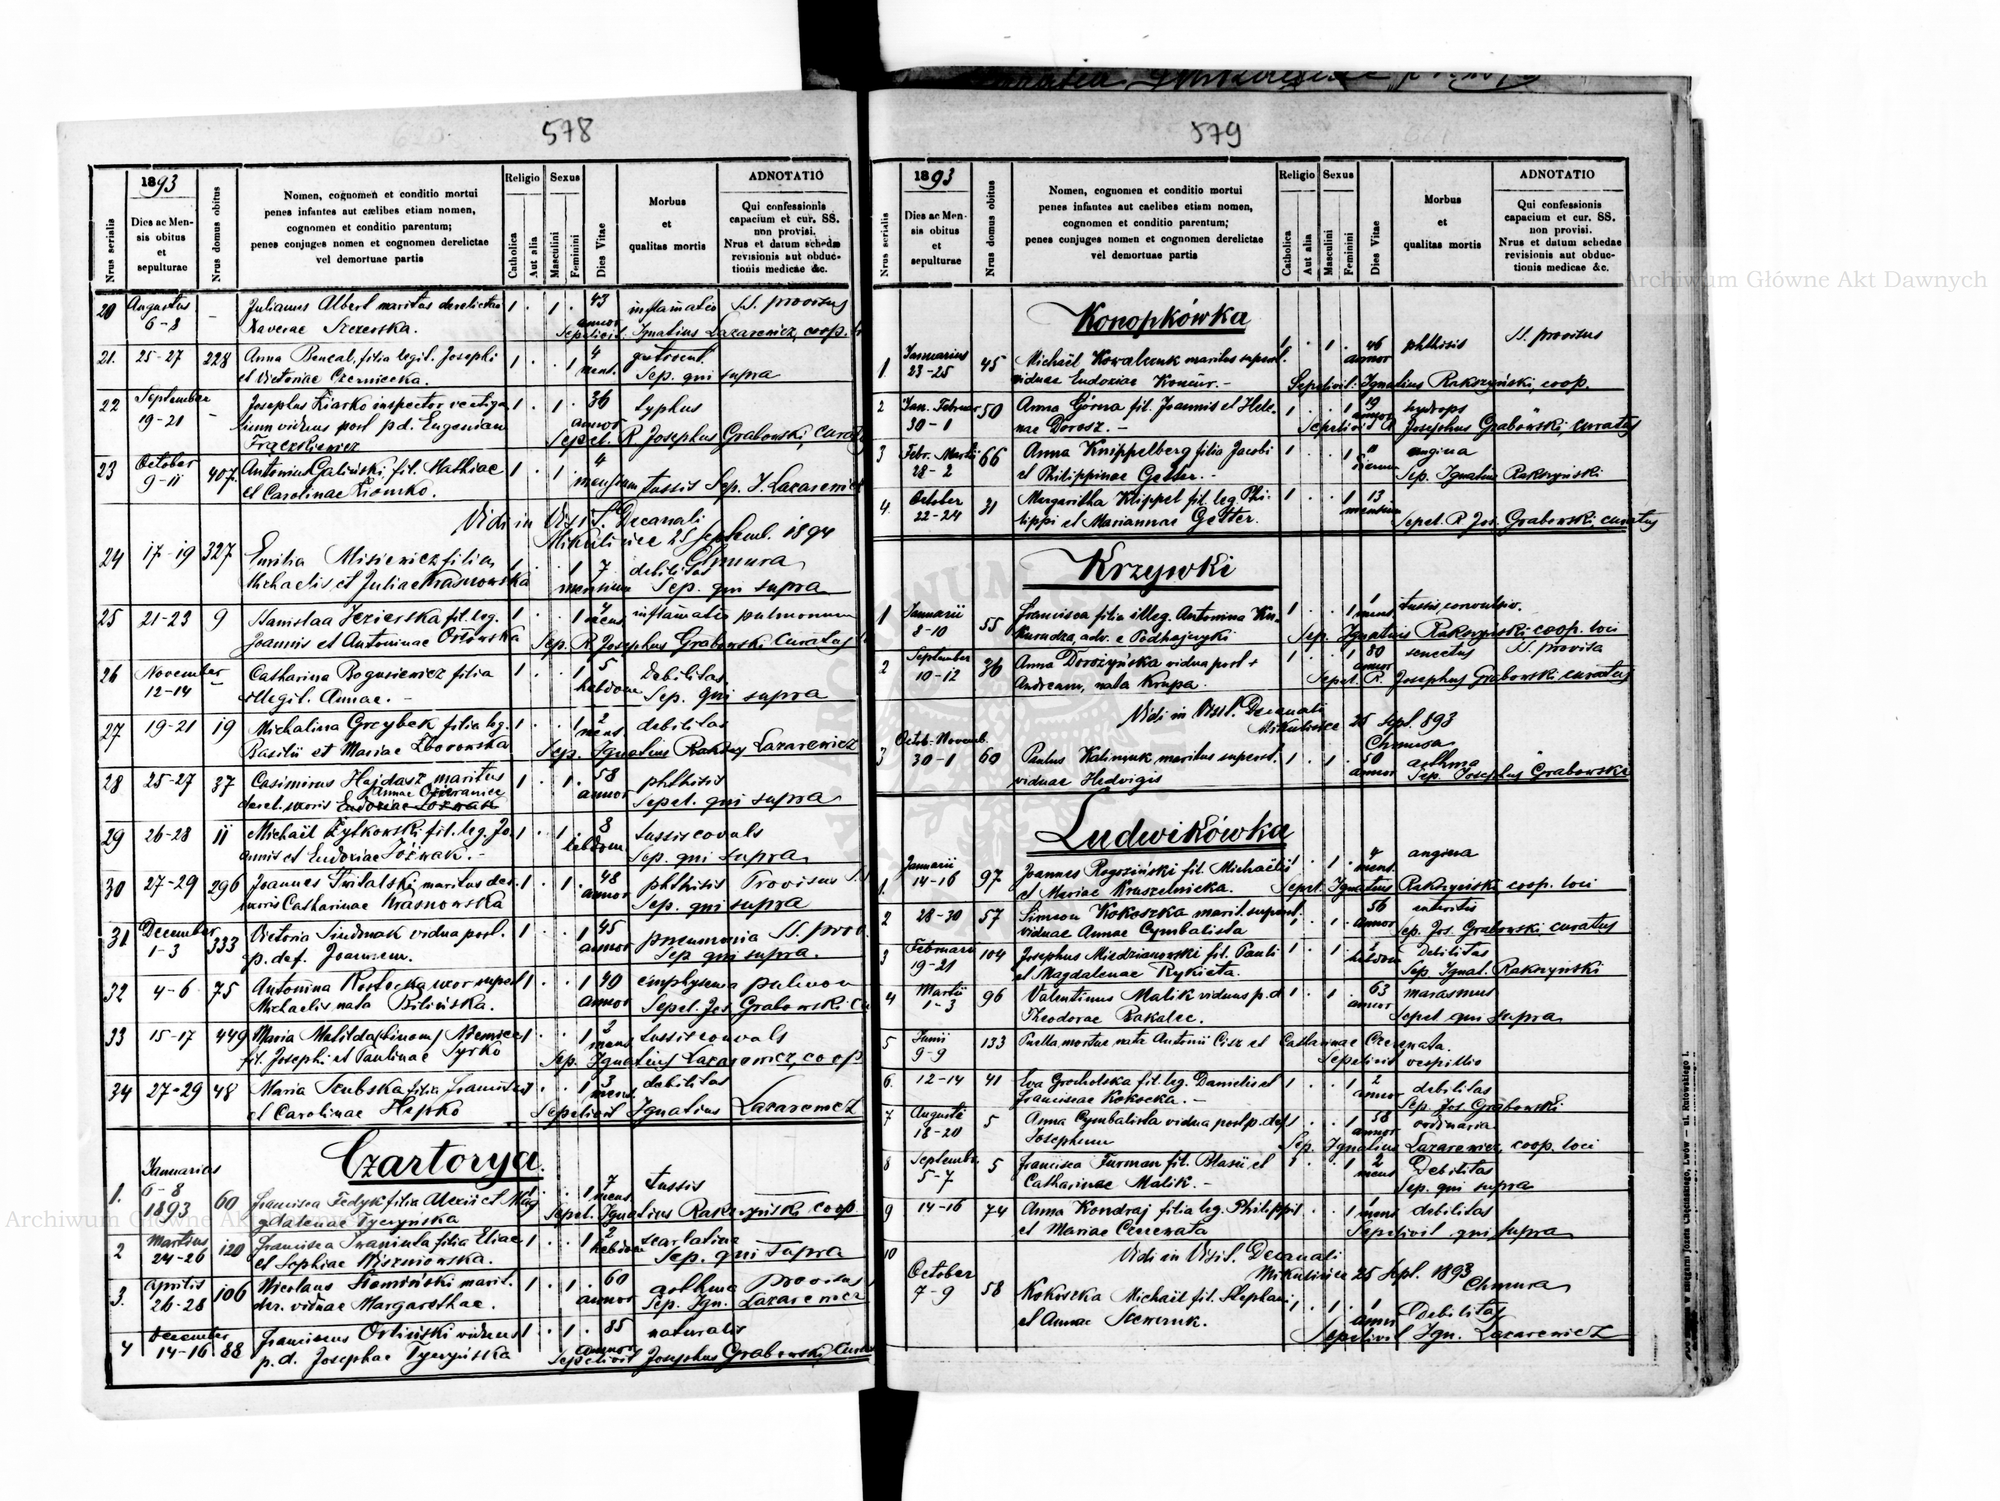 578
1893
Nrus serialis
Dies ac Men-
sis obitus
et
sepulturae
Nrus domus obitus
Nomen, cognomen et conditio mortui
penes infantes aut caelibes etiam nomen,
cognomen et conditio parentum;
penes conjuges nomen et cognomen derelictae
vel demortuae partis
Religio
Catholica
Aut alia
Sexus
Masculini
Feminini
Dies Vitae
Morbus
et
qualitas mortis
ADNOTATIO
Qui confessionis
capacium et cur. SS.
non provisi.
Nrus et datum schedae
revisionis aut obduc-
tionis medicae &c.
20 Augustus 6-8 - Julianus Albert maritus derelictae 1 . 1 . 43 inflamatio SS. provisus
Xaverae Szczerska. annor Sepelivit Ignatius Lazarewicz, coop.
21. 25-27 228 Anna Bencal, filia legit. Josephi 1 . . 1 4
et Victoriae Czerniecka. ment. Sep. qui supra
22 Septembre 19-21 - Josephus Ziarko inspector vectiga 1 . 1 . 36 typhus
lium viduus post p.d. Eugeniam annor
Frączkiewicz Sepel. R. Josephus Grabowski, curat
23 October 9-11 407. Antonius Galiński fil. Mathiae 1 . 1 4
et Carolinae Ziomko. mensium tussis Sep. I. Lazarewicz
Vidi in Visit. Decanali
Mikulińce 25 septemb. 1894
Chmura
24 17-19 327 Emilia Misiewicz filia 1 . . 1 7 debilitas
Michaelis et Juliae Krasnowska mensium Sep. qui supra
25 21-23 9 Stanislaa Jezierska fil. leg. 1 . . 1 4 mens inflamatio pulmonum
Joannis et Antoninae Orłowska Sep. R. Josephus Grabowski Curatus
26 November 12-14 - Catharina Bogusiewicz filia 1 . . 1 5 Debilitas
illegit. Annae. - hebdom Sep. qui supra
27 19-21 19 Michalina Grzybek filia leg. 1 . . 1 2 mens debilitas
Basilii et Mariae Zborowska Sep. Ignatius Lazarewicz
28 25-27 37 Casimirus Hajdasz maritus 1 . 1 . 58 phthisis
Annae
derel. uxoris Eudoxiae annor Sepel. qui supra
29 26-28 11 Michaël Zytkowski fil. leg. Jo- 1 . 1 8
annis et Eudoxiae Jóźwak. - hebdom Sep. qui supra
30 27-29 296 Joannes maritus der. 1 . 1 . 48 phthisis Provisus
uxoris Catharinae Krasnowska annor Sep. qui supra
31 December 1-3 333 Victoria vidua post. 1 . . 1 45 pneumonia SS. prov.
p. def. Joannem. annor Sep qui supra.
32 4-6 75 Antonina uxor superst 1 . . 1 40 emphysema pulmon
Michaelis nata Bilińska. annor Sepel. Jos. Grabowski cu
33 15-17 449 Maria Matilda 1 . . 1 2
fil. Josephi et Paulinae Syrko mens Sep. Ignatius Lazarewicz, coop
34 27-29 48 Maria filia 1 . . 1 3 debilitas
et Carolinae Hepko mens. Sepelivit Ignatius Lazarewicz
Czartorya.
1. Januarius 6-8 1893 60 Francisca Fedyk filia Alexii et Mag 1 . . 1 7 tussis
gdalenae Tyczyńska mens Sepel. Ignatius Rakszyński coop.
2 Martius 24-26 120 Francisca Iwaniuta filia Eliae 1 . . 1 2 scarlatina
et Sophiae Wiszniowska. hebdom Sep. qui supra
3. Aprilis 26-28 106 Nicolaus marit. 1 . 1 . 60 asthma Provisus
der. viduae Margarethae. annor Sep. Ign. Lazarewicz
4 December 14-16 88 Franciscus Orliński viduus 1 . 1 . 85 naturalis
p.d. Josephae Tyczyńska annor Sepelivit Josephus Grabowski, Curat
579
1893
Nrus serialis
Dies ac Men-
sis obitus
et
sepulturae
Nrus domus obitus
Nomen, cognomen et conditio mortui
penes infantes aut caelibes etiam nomen,
cognomen et conditio parentum;
penes conjuges nomen et cognomen derelictae
vel demortuae partis
Religio
Catholica
Aut alia
Sexus
Masculini
Feminini
Dies Vitae
Morbus
et
qualitas mortis
ADNOTATIO
Qui confessionis
capacium et cur. SS.
non provisi.
Nrus et datum schedae
revisionis aut obduc-
tionis medicae &c.
Konopkówka
1. Januarius 23-25 45 Michaël Kowalczuk maritus superst. 1 . 1 . 46 annor phthisis SS. provisus
viduae Eudoxiae - Sepelivit: Ignatius Rakszyński, coop.
2 Jan. Februar 30-1 50 Anna Górna fil. Joannis et Hele- 1 . . 1 19 annor hydrops
nae Dorosz. - Sepelivit R Josephus Grabowski, curatus
3 Febr. Martii 28-2 66 Anna Knippelberg filia Jacobi 1 . . 1 11 angina
et Philippinae Getter. - dierum Sep. Ignatius Rakszyński
4. October 22-24 31 Margaritha Klippel fil. leg. Phi- 1 . . 1 13
lippi et Mariannae Getter. mensium Sepel. R Jos. Grabowski, curatus
Krzywki
1 Januarii 8-10 55 Francisca filia illeg. Antonina Ku- 1 . . 1 1 mens tussis, convulsio.
kurudza, adv. e Podhajczyki Sep. Ignatius Rakszyński, coop. loci
2 September 10-12 36 Anna Dorożyńska vidua post + 1 . . 1 80 annor senectus SS. provisa
Andream, nata Krupa. Sepel. R. Josephus Grabowski, curatus
Vidi in Visit. Decanali
Mikulińce 25 Sept. 893
Chmura
3 Octob-Novemb. 30-1 60 Paulus Kalinyuk maritus superst. 1 . 1 . 50 asthma
viduae Hedvigis annor Sep. Josephus Grabowski
Ludwikówka
1. Januarii 14-16 97 Joannes Rogoziński fil. Michaelis 1 . 1 . 4 mens. angina
et Mariae Kruszelnicka. Sepel. Ignatius Rakszyński coop. loci
2 28-30 57 Simeon Kokoszka marit. superst. 1 . 1 . 56 annor
viduae Annae Cymbalista Sep. Jos. Grabowski, curatus
3 Februarii 19-21 104 Josephus Miedzianowski fil. Pauli 1 . 1 . 2 hebdom Debilitas
et Magdalenae Rykieta. Sep. Ignat. Rakszyński
4 Martii 1-3 96 Valentinus Malik viduus p.d. 1 . 1 . 63 annor marasmus
Theodorae Bakalec. Sepel. qui supra
5 Junii 9-9 133 Puella, mortua nata Antonii Cisz et Catharinae Czerwata.
Sepelivit vespillio
6. 12-14 41 Eva Grocholska fil. leg. Danielis et 1 . . 1 2 annor debilitas
Franciscae Kokocka. - Sep. Jos. Grabowski
7 Augusti 18-20 5 Anna Cymbalista vidua post p. def 1 . . 1 58 annor ordinaria
Josephum Sep. Ignatius Lazarewicz, coop. loci
8 Septembr. 5-7 5 Francisca Furman fil. Blasii et 1 . . 1 2 mens Debilitas
Catharinae Malik. - Sep. qui supra
9 14-16 74 Anna Kondraj filia leg. Philippi 1 . . 1 1 mens debilitas
et Mariae Czerwata Sepelivit qui supra
10 Vidi in Visit. Decanali
Mikulińce 25 Sept. 1893
Chmura
October 7-9 58 Kokoszka Michaël fil. Stephani 1 . 1 . 1 Debilitas
et Annae Szewczuk. anni Sepelivit Ign. Lazarewicz
Archiwum Główne Akt Dawnych
Archiwum Główne Akt